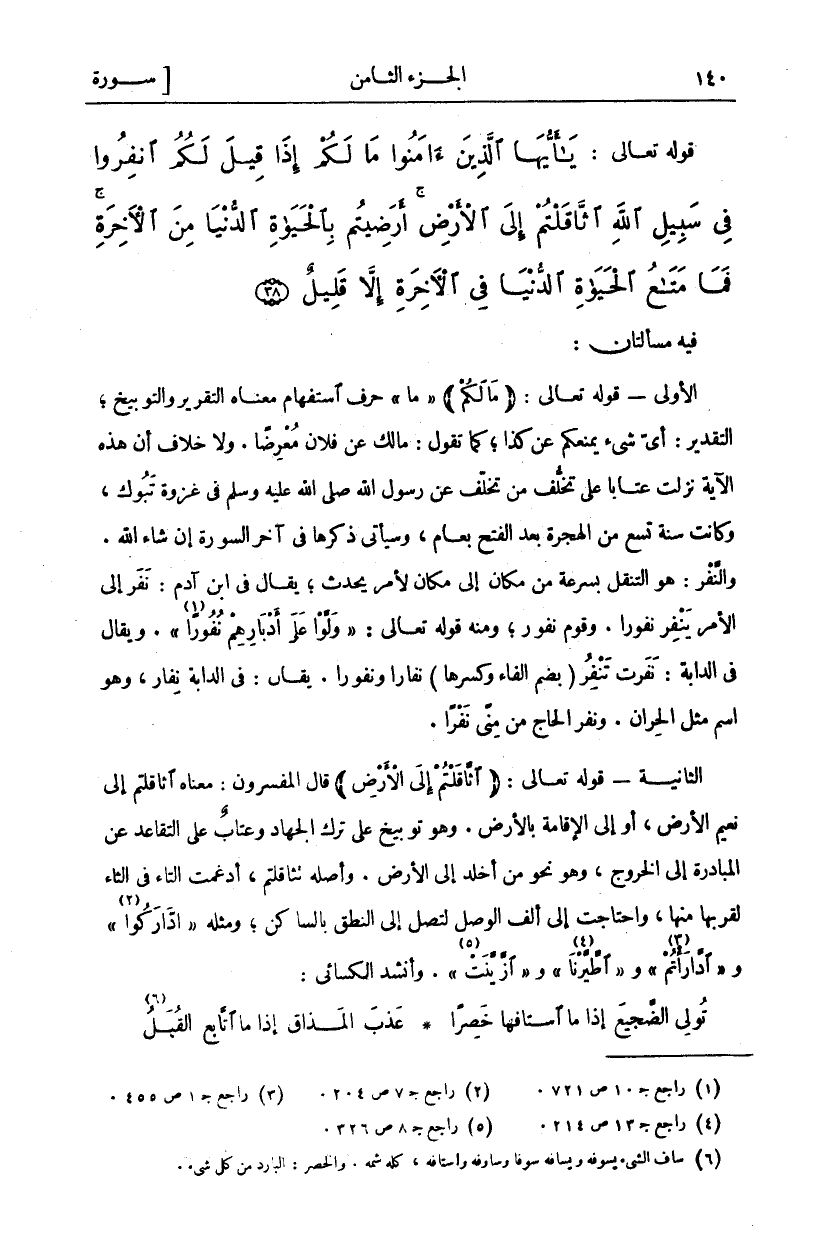 ١٤٠ الجـزء الثـامن [ سـورة
قوله تعـالى : يَـٰٓأَيُّهَـا ٱلَّذِينَ ءَامَنُوا مَا لَكُمْ إِذَا قِيـلَ لَـكُمُ ٱنفِرُوا
فِى سَبِيلِ ٱللَّهِ ٱثَّاقَلْتُمْ إِلَى ٱلْأَرْضِ ۚ أَرَضِيتُم بِٱلْحَيَوٰةِ ٱلدُّنْيَا مِنَ ٱلْأٓخِرَةِ ۚ
فَمَـا مَتَـٰعُ ٱلْحَيَوٰةِ ٱلدُّنْيَـا فِى ٱلْأٓخِرَةِ إِلَّا قَلِيـلٌ ﴿٣٨﴾
فيه مسألتان :
الأولى — قوله تعـالى : ﴿ مَالَكُمْ ﴾ « ما » حرف ٱستفهام معنـاه التقرير والتوبيخ ؛
التقدير : أىّ شىء يمنعكم عن كذا ؛ كما تقول : مالك عن فلان مُعْرِضًا . ولا خلاف أن هذه
الآية نزلت عتـابا على تخلُّف من تخلّف عن رسول الله صلى الله عليه وسلم فى غزوة تَبُوك ،
وكانت سنة تسع من الهجرة بعد الفتح بعـام ، وسيأتى ذكرها فى آخر السورة إن شاء الله .
والنَّفْر : هو التنقل بسرعة من مكان إلى مكان لأمر يحدث ؛ يقـال فى ابن آدم : نَفَر إلى
الأمر يَنْفِر نفورا . وقوم نفور ؛ ومنه قوله تعـالى : « وَلَّوْا عَلَى أَدْبَارِهِمْ نُفُورًا (١) » . ويقال
فى الدابة : نَفَرت تَنْفُِر ( بضم الفاء وكسرها ) نفارا ونفورا . يقـال : فى الدابة نِفار ، وهو
اسم مثل الحِران . ونفر الحاج من مِنًى نَفْرًا .
الثانيـة — قوله تعـالى : ﴿ ٱثَّاقَلْتُمْ إِلَى الْأَرْضِ ﴾ قال المفسرون : معناه ٱثاقلتم إلى
نعيم الأرض ، أو إلى الإقامة بالأرض . وهو توبيخ على ترك الجهاد وعتابٌ على التقاعد عن
المبادرة إلى الخروج ، وهو نحو من أخلد إلى الأرض . وأصله تثاقلتم ، أدغمت التاء فى الثاء
لقربها منها ، واحتاجت إلى ألف الوصل لتصل إلى النطق بالساكن ؛ ومثله « ادّارَكُوا (٢) »
و « ٱدَّارَأْتُمْ (٣) » و « ٱطَّيَّرْنَا (٤) » و « ٱزَّيَّنَتْ (٥) » . وأنشد الكسائى :
تُولى الضَّجيعَ إذا ما ٱستافها خَصِرًا * عَذبَ المَـذاق إذا ما ٱتّابع القُبَلُ (٦)
(١) راجع جـ ١٠ ص ٧٢١ . (٢) راجع جـ ٧ ص ٢٠٤ . (٣) راجع جـ ١ ص ٤٥٥ .
(٤) راجع جـ ١٣ ص ٢١٤ . (٥) راجع جـ ٨ ص ٣٢٦ .
(٦) ساف الشىء يسوفه ويسافه سوفا وساوفه واستافه ، كله شمه . والخصر : البارد من كل شىء .